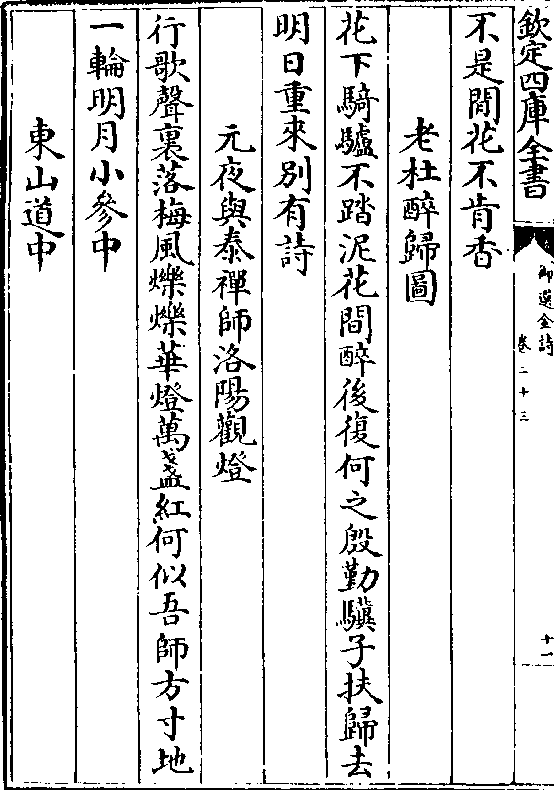 欽定四庫全書
御選金詩
卷二十三
十一
不是閒花不肯香
老杜醉歸圖
花下騎驢不踏泥花間醉後復何之殷勤驥子扶歸去
明日重來別有詩
元夜與泰禪師洛陽觀燈
行歌聲裏落梅風爍爍華燈萬盞紅何似吾師方寸地
一輪明月小參中
東山道中